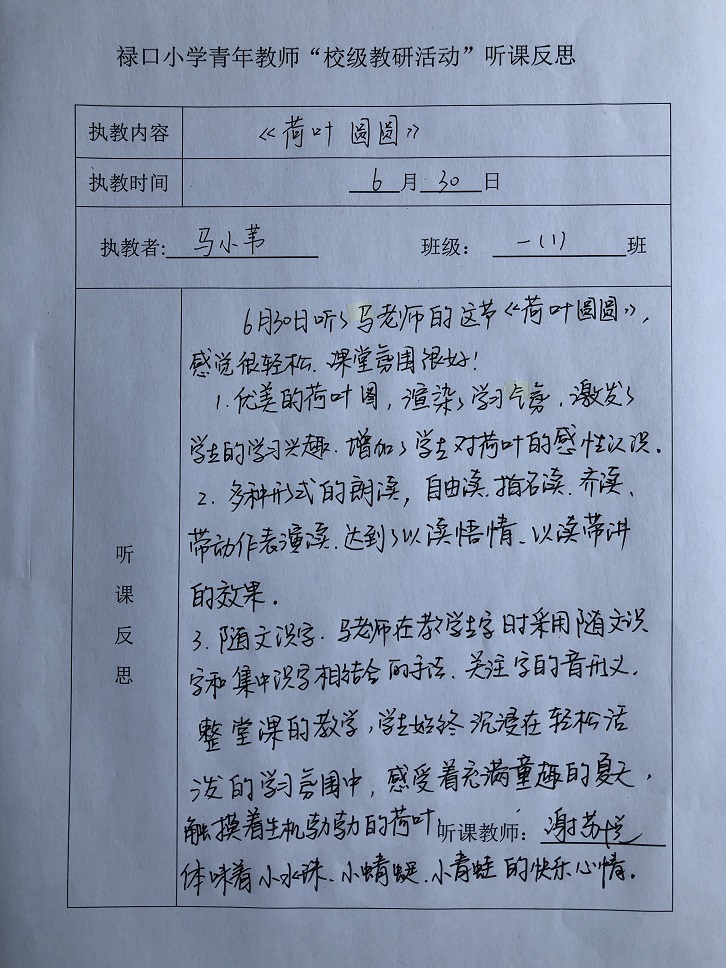 禄口小学青年教师“校级教研活动”听课反思
执教内容 《荷叶圆圆》
执教时间 6月30日
执教者: 马小苇 班级: 一(1) 班
听课反思
6月30日听了马老师的这节《荷叶圆圆》,
感觉很轻松.课堂氛围很好!
1.优美的荷叶图,渲染了学习气氛.激发了
学生的学习兴趣.增加了学生对荷叶的感性认识.
2.多种形式的朗读,自由读.指名读.齐读、
带动作表演读.达到了以读悟情、以读带讲
的效果.
3.随文识字.马老师在教学生字时采用随文识
字和集中识字相结合的手法.关注字的音形义.
整堂课的教学,学生始终沉浸在轻松活
泼的学习氛围中,感受着充满童趣的夏天,
触摸着生机勃勃的荷叶 听课教师: 谢苏悦
体味着小水珠、小蜻蜓、小青蛙的快乐心情.